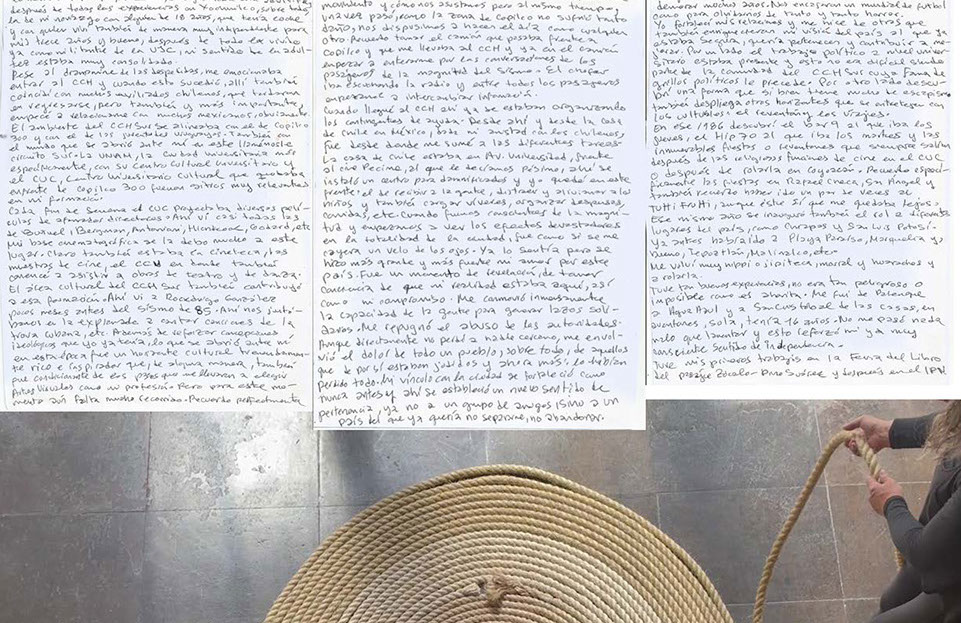 después de todas las experiencias en Xochimilco, sobre todo
de mi noviazgo con alguien de 18 años, que tenía coche
y con quien viví también de manera muy independiente para
mis trece años y bueno, después de todo ese vivido
ya como militante de la USC, mi sentido de la adul-
tez estaba muy consolidado.
Pese al dramatismo de las despedidas, me emocionaba
entrar al CCH y cuando esto sucedió, allí también
coincidí con muchos exiliados chilenos, que tardaron
en regresarse, pero también y más importante,
empecé a relacionarme con muchos mexicanos, obviamente.
El ambiente del CCH Sur se alineaba con el de Copilco
300 y con el de los puestos uruguayos, también con
el mundo que se abrió ante mí en este llamémosle
circuito sur. La UNAM, la ciudad universitaria más
específicamente, con su Centro Cultural Universitario y
el CUC, Centro Universitario Cultural que quedaba
enfrente de Copilco 300 fueron sitios muy relevantes
en mi formación.
Cada fin de semana el CUC proyectaba diversos pelí-
culas de afamados directores. Ahí vi casi todas las
de Buñuel, Bergman, Antonioni, Hitchcock, Godard, etc.
Mi base cinematográfica se la debo mucho a este
lugar. Claro también estaba la cineteca, las
muestras de cine, el CCU en donde también
comencé a asistir a obras de teatro y de danza.
El área cultural del CCH Sur también contribuyó
a esa formación. Ahí vi a Rockdrigo González
pocos meses antes del sismo de 85. Ahí nos juntá-
bamos en la explanada a cantar canciones de la
trova cubana, etc. Además de reforzar concepciones
ideológicas que yo ya tenía, lo que se abrió ante mí
en esta época fue un horizonte cultural tremendamen-
te rico e inspirador que, de alguna manera, también
fue condicionante de los pasos que me llevaron a elegir
Artes Visuales como mi profesión. Pero para este mo-
mento aún falta mucho recorrido. Recuerdo perfectamente
movimiento y cómo nos asustamos pero al mismo tiempo,
una vez pasó, como la zona de Copilco no sufrió tanto
daño, nos dispusimos a hacer el día como cualquier
otro. Recuerdo tomar el camión que pasaba frente a
Copilco y que me llevaba al CCH y ya en el camión
empezar a enterarme por las conversaciones de los
pasajeros de la magnitud del sismo. El chofer
iba escuchando la radio y entre todos los pasajeros
empezaron a intercambiar información.
Cuando llegué al CCH ahí ya se estaban organizando
los contingentes de ayuda. Desde ahí y desde la casa
de Chile en México, dada mi amistad con los chilenos,
fue desde donde me sumé a las diferentes tareas.
La casa de Chile estaba en Av. Universidad, frente
al cine Pecime, al que le decíamos pésimo, ahí se
instaló un centro para damnificados y yo quedé en este
frente: el de recibir a la gente, distraer y alivianar a los
niños y también cargar víveres, organizar despensas,
comidas, etc. Cuando fuimos conscientes de la magni-
tud y empezamos a ver los efectos devastadores
en la totalidad de la ciudad, fue como si se me
cayera un velo a los ojos. Ya lo sentía pero se
hizo más grande y más fuerte mi amor por este
país. Fue un momento de revelación, de tomar
conciencia de que mi realidad estaba aquí, así
como mi compromiso. Me conmovió inmensamente
la capacidad de la gente para generar lazos soli-
darios. Me repugnó el abuso de las autoridades.
Aunque directamente no perdí a nadie cercano, me envol-
vió el dolor de todo un pueblo, sobre todo, de aquellos
que de por sí estaban jodidos y ahora más: lo habían
perdido todo. Mi vínculo con la ciudad se fortaleció como
nunca antes y ahí se estableció un nuevo sentido de
pertenencia, ya no a un grupo de amigos sino a un
país del que ya quería no separarme, no abandonar.
demorar muchos años. Nos encajaron un mundial de futbol
como para olvidarnos de tanto y tanto horror.
Yo fortalecí mis relaciones y me hice de otras que
también enriquecieron mi visión del país al que ya
estaba segura, quería pertenecer y contribuir a me-
jorar. Por un lado el trabajo político a nivel univer-
sitario estaba presente y esto no era difícil siendo
parte de la comunidad del CCH Sur cuya fama de
grillos políticos le precede. Por otro lado descu-
brí una forma que si bien tiene mucho de escapismo
también despliega otros horizontes que se entretejen con
los cultubles: el reventón y los viajes.
En ese 1986 descubrí el bar 9 al que iba los
jueves, el Hip 70 al que iba los martes y las
innumerables fiestas o reventones que siempre salían
después de las religiosas funciones de cine en el CUC
o después de rolarla en Coyoacán. Recuerdo especí-
ficamente las fiestas en Tlazpatlaca, San Ángel y
también recuerdo haber ido un par de veces al
TUTTI FRUTTI, aunque éste sí que me quedaba lejos.
Ese mismo año se inauguró también el rol a diferentes
lugares del país, como Cuajos y San Luis Potosí.
Ya antes había ido a Playa Paraíso, Maruata ya
bueno, Tepoztlán, Malinalco, etc.
Me volví muy hippie o jipiteca, morral y huaraches y
a rolarla.
Tuve tan buenas experiencias, no era tan peligroso o
imposible como es ahorita. Me fui de Palenque
a Agua Azul y a San Cristóbal de las Casas, en
aventones, sola, tenía 16 años. No me pasó nada
malo que lamentar y se reforzó mi ya muy
consistente sentido de independencia.
Tuve mis primeros trabajos en la Feria del Libro
del pasaje Zócalo-Pino Suárez y después en el IPN